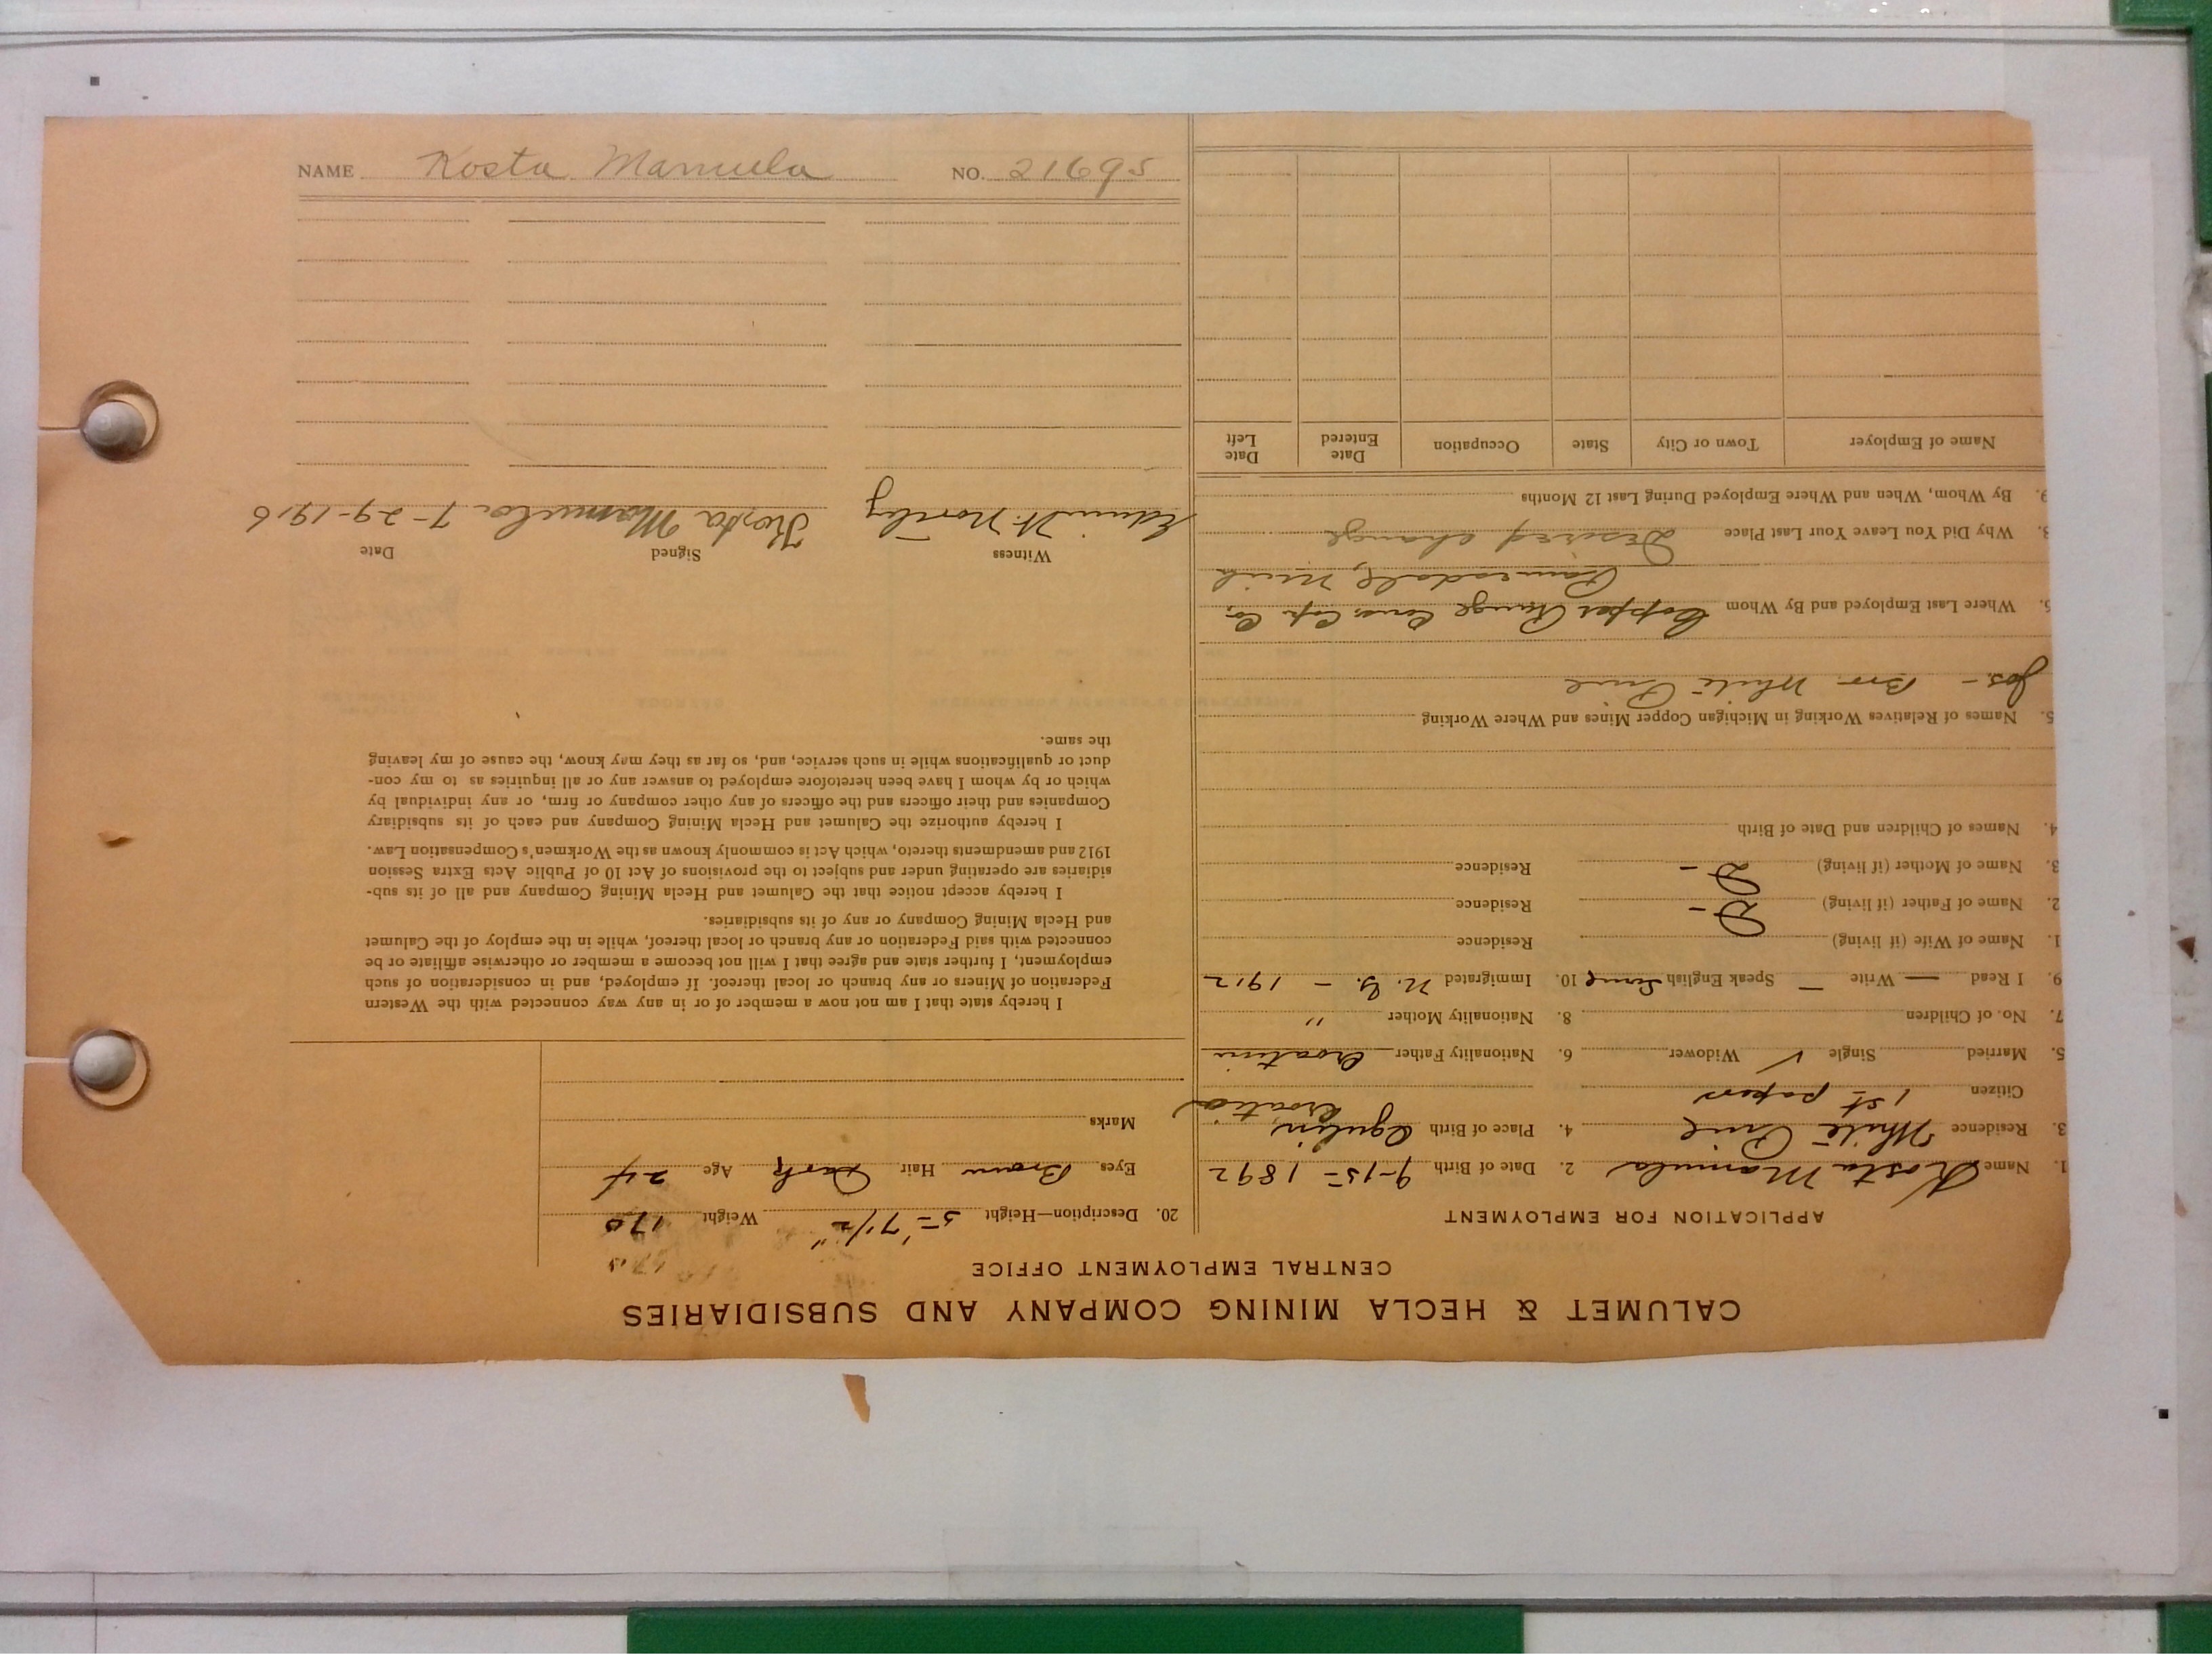 NAME Kosta Mamula NO. 21695
CALUMET & HECLA MINING COMPANY AND SUBSIDIARIES
CENTRAL EMPLOYMENT OFFICE
APPLICATION FOR EMPLOYMENT
1. Name Kosta Mamula 2. Date of Birth 9-15-1892
3. Residence White Pine 4. Place of Birth Ogulin Croatia
Citizen 1st papers
5. Married Single ✓ Widower 6. Nationality Father Croatian
7. No. of Children 8. Nationality Mother "
9. I Read — Write — Speak English Some 10. Immigrated N. Y. - 1912
1. Name of Wife (if living) Residence
2. Name of Father (if living) D- Residence
3. Name of Mother (if living) D- Residence
4. Names of Children and Date of Birth
5. Names of Relatives Working in Michigan Copper Mines and Where Working
Jos. - Bro. White Pine
6. Where Last Employed and By Whom Copper Range Cons. Cop. Co.
Painesdale, Mich
8. Why Did You Leave Your Last Place Desired change
9. By Whom, When and Where Employed During Last 12 Months
Name of Employer Town or City State Occupation Date Entered Date Left
20. Description—Height 5' 7 1/2" Weight 170
Eyes Brown Hair Dark Age 24
Marks
I hereby state that I am not now a member of or in any way connected with the Western
Federation of Miners or any branch or local thereof. If employed, and in consideration of such
employment, I further state and agree that I will not become a member or otherwise affiliate or be
connected with said Federation or any branch or local thereof, while in the employ of the Calumet
and Hecla Mining Company or any of its subsidiaries.
I hereby accept notice that the Calumet and Hecla Mining Company and all of its sub-
sidiaries are operating under and subject to the provisions of Act 10 of Public Acts Extra Session
1912 and amendments thereto, which Act is commonly known as the Workmen's Compensation Law.
I hereby authorize the Calumet and Hecla Mining Company and each of its subsidiary
Companies and their officers and the officers of any other company or firm, or any individual by
which or by whom I have been heretofore employed to answer any or all inquiries as to my con-
duct or qualifications while in such service, and, so far as they may know, the cause of my leaving
the same.
Witness Signed Date
Kosta Mamula 7-29-1916